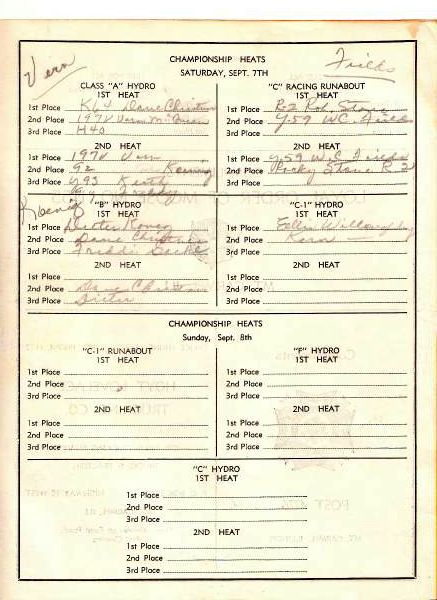 Vern
Fields
CHAMPIONSHIP HEATS
SATURDAY, SEPT. 7TH
CLASS "A" HYDRO
1ST HEAT
1st Place K64 Dane Christian
2nd Place 197V Vern
3rd Place H40
2ND HEAT
1st Place 197V Vern
2nd Place 92
3rd Place Y93
"C" RACING RUNABOUT
1ST HEAT
1st Place R-2 Rob. Stone
2nd Place Y-59 W.C. Fields
3rd Place
2ND HEAT
1st Place Y59 W.C. Fields
2nd Place Rocky Stone R-2
3rd Place
Koenig
"B" HYDRO
1ST HEAT
1st Place Dieter
2nd Place Dane Christian
3rd Place
2ND HEAT
1st Place
2nd Place Dane Christian
3rd Place Dieter
"C-1" HYDRO
1ST HEAT
1st Place Willoughby
2nd Place
3rd Place
2ND HEAT
1st Place
2nd Place
3rd Place
CHAMPIONSHIP HEATS
Sunday, Sept. 8th
"C-1" RUNABOUT
1ST HEAT
1st Place
2nd Place
3rd Place
2ND HEAT
1st Place
2nd Place
3rd Place
"F" HYDRO
1ST HEAT
1st Place
2nd Place
3rd Place
2ND HEAT
1st Place
2nd Place
3rd Place
"C" HYDRO
1ST HEAT
1st Place
2nd Place
3rd Place
2ND HEAT
1st Place
2nd Place
3rd Place